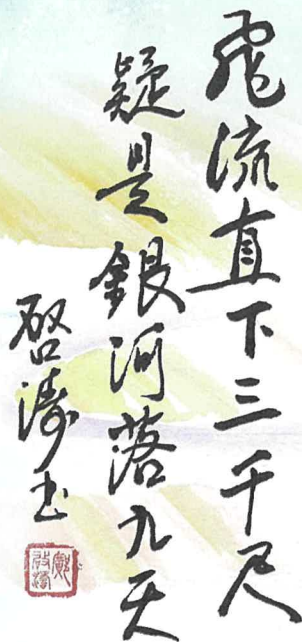 飛流直下三千尺
疑是銀河落九天
啓濤书